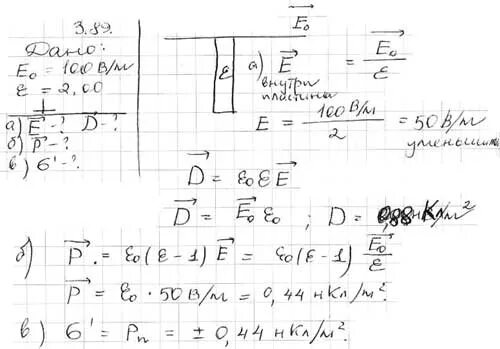 3.89.
Дано:
E₀ = 100 В/м
ε = 2,00
⊥
а) E⃗ -? D⃗ -?
б) P⃗ -?
в) σ' -?
E₀⃗
ε
а) E⃗ внутри пластины = E₀⃗ / ε
E = 100 В/м / 2 = 50 В/м
D⃗ = ε₀ ε E⃗
D⃗ = E₀⃗ ε₀ ; D = 0,88 нКл/м²
б) P⃗ = ε₀(ε - 1) E⃗ = ε₀(ε - 1) E₀⃗ / ε
P⃗ = ε₀ · 50 В/м = 0,44 нКл/м².
в) σ' = Pₙ = ± 0,44 нКл/м².